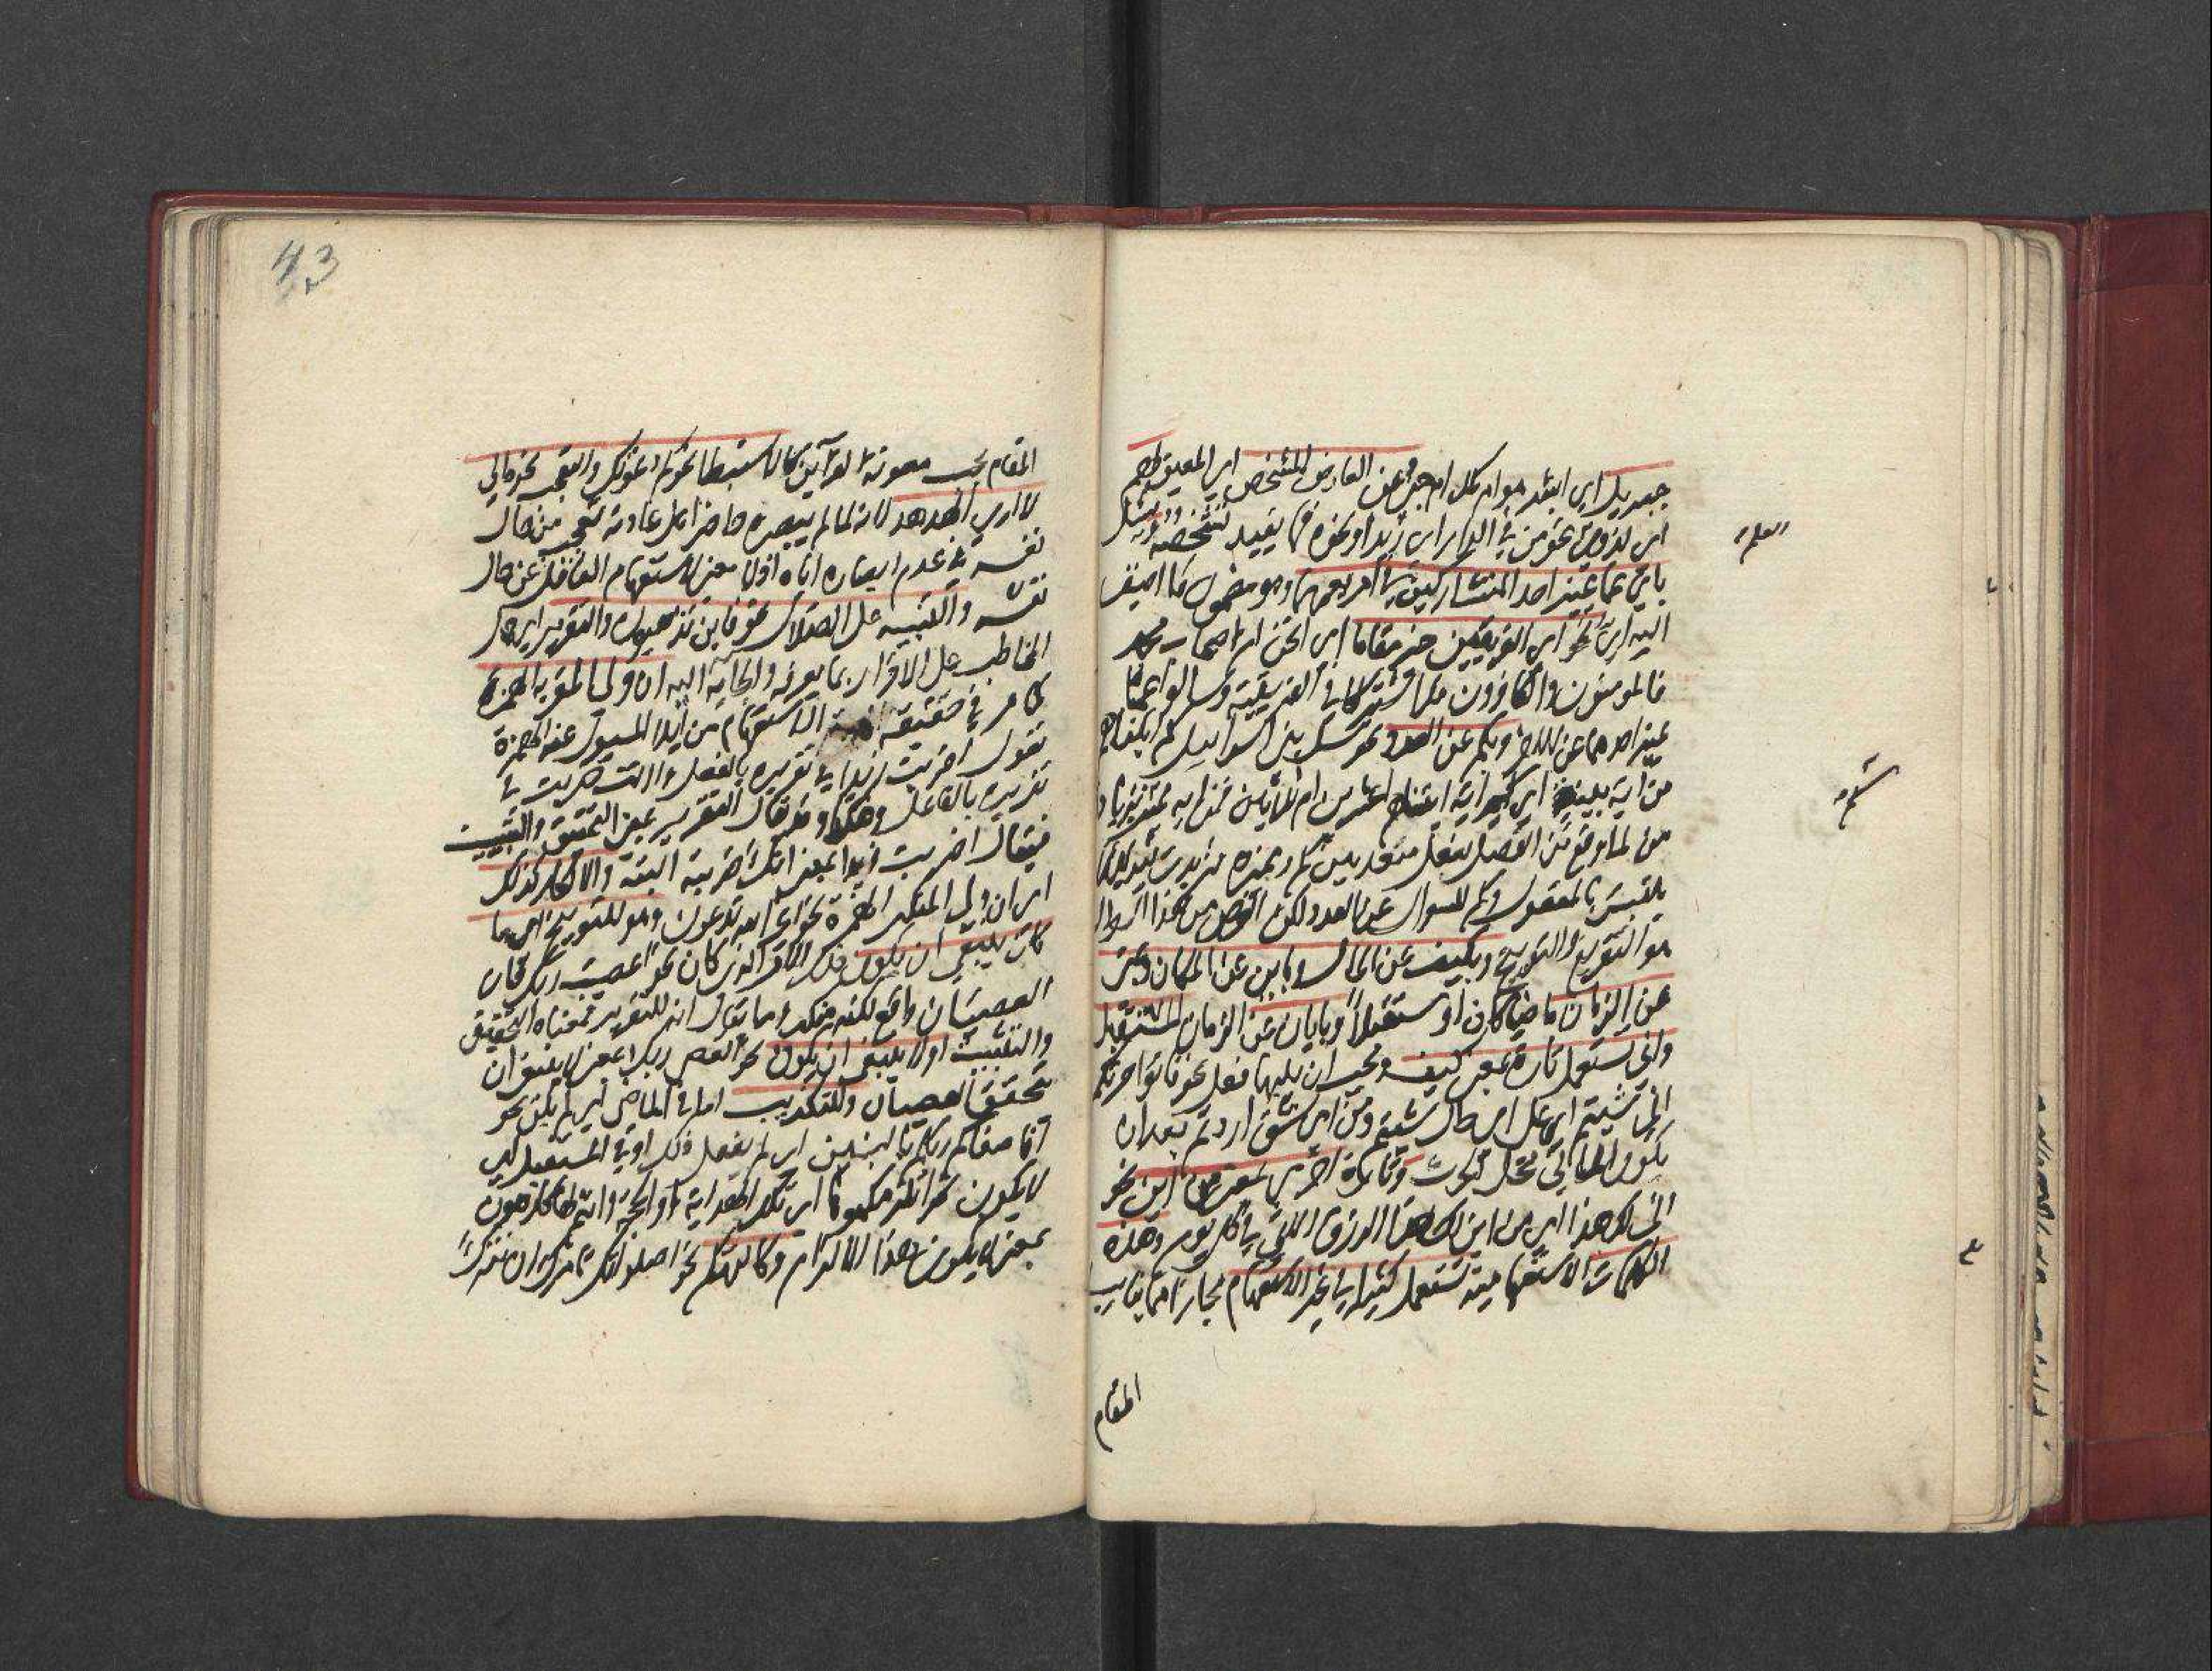 جبريل اي ابشر هو ام ملك ام جني وبمن عن العارض المشخص اي المعين
اي لذوي نحو من في الدار اي زيد او نحوه مما يفيد تشخصه
باي عما يميز احد المتشاركين في امر يعمهما وهو مضمون ما اضيف
اليه اي نحو اي الفريقين خير مقاما اي انحن ام اصحاب محمد
فالمؤمنون والكافرون قد اشتركا في الفريقية وسالوا عما
يميز احدهما عن الاخر وبكم عن العدد نحو سل بني اسرائيل كم اتيناهم
من اية بينة اي كم اية اتيناهم اعشرين ام ثلاثين فمن اية مميز بزيادة
من لما وقع من الفصل بفعل متعد بين كم ومميزه
يلتبس بالمفعول وكم للسوال عن العدد لكن الغرض من هذا السوال
هو التقريع والتوبيخ وبكيف عن الحال وباين عن المكان وبمتى
عن الزمان ماضيا كان او مستقبلا وبايان عن الزمان المستقبل
وانى تستعمل تارة بمعنى كيف ويجب ان يليها فعل نحو فاتوا حرثكم
انى شئتم اي على اي حال شئتم ومن اي شق اردتم بعد ان
يكون الماتي محل الحرث وتارة اخرى بمعنى من اين نحو
انى لك هذا اي من اين لك هذا الرزق الاتي في كل يوم وهذه
الكلمات الاستفهامية تستعمل كثيرا في غير الاستفهام مجازا مما يناسب
المقام
43
المقام بحسب معونة القرآين كالاستبطاء نحو كم دعوتك والتعجب نحو مالي
لا ارى الهدهد لانه لما لم يبصره حاضرا على عادته تعجب من حال
نفسه في عدم ابصاره اياه اذ لا معنى لاستفهام العاقل عن حال
نفسه والتنبيه على الضلال نحو فاين تذهبون والتقرير اي حمل
المخاطب على الاقرار بما يعرفه والجائه اليه ان ولى المقرر به الهمزة
كما مر في حقيقة الاستفهام من ايلاء المسئول عنه الهمزة
تقول اضربت زيدا في تقريره بالفعل واانت ضربت في
تقريره بالفاعل وهكذا وقد يقال التقرير بمعنى التحقيق والتثبيت
فيقال اضربت زيدا بمعنى انك ضربته البتة والانكار كذلك
اي ان ولى المنكر الهمزة نحو اغير الله تدعون وهو للتوبيخ اي ما
كان ينبغي ان يكون ذلك الامر الذي كان نحو اعصيت ربك فان
العصيان واقع لكنه منكر وما يقال انه للتقرير فمعناه التحقيق
والتثبيت او لا ينبغي ان يكون نحو اتعصي ربك بمعنى لا ينبغي ان
يتحقق العصيان وللتكذيب اما في الماضي اي لم يكن نحو
افاصفاكم ربكم بالبنين اي لم يفعل ذلك او في المستقبل اي
لا يكون نحو انلزمكموها اي تلك الهداية او الحجة وانتم لها كارهون
بمعنى لا يكون هذا الالزام وكالتهكم نحو اصلواتك تامرك ان نترك